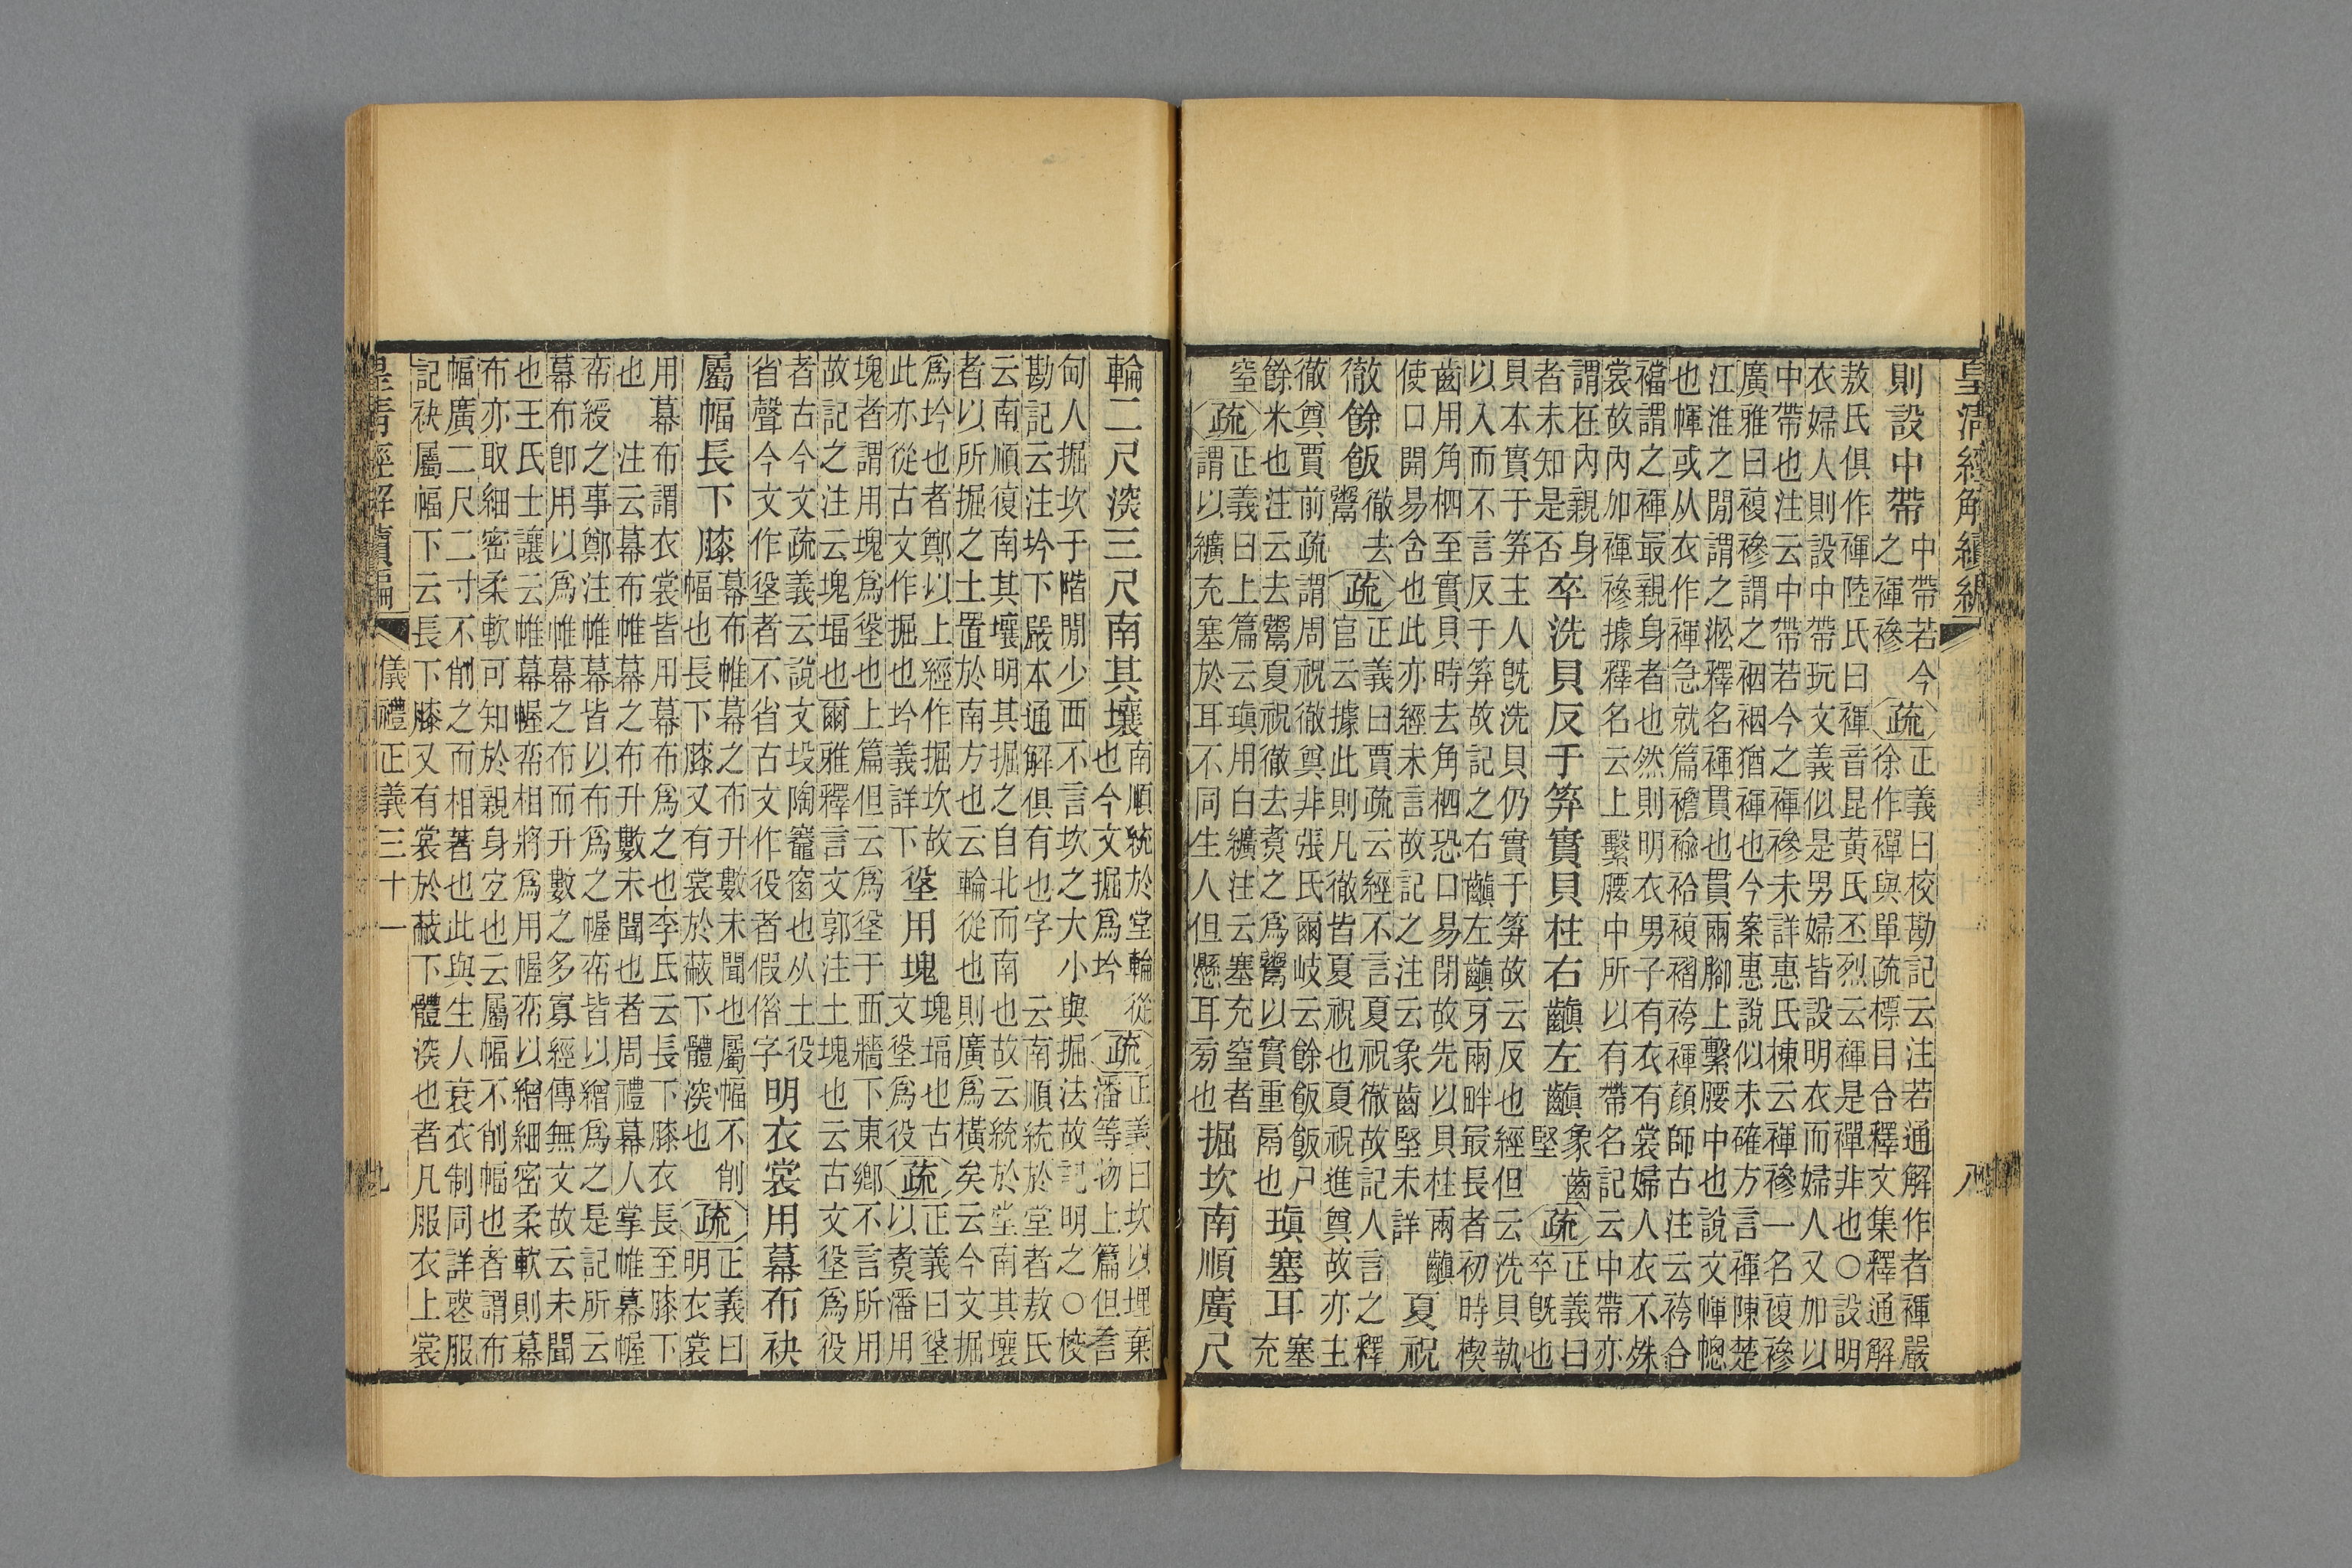 皇清經解續編 八
則設中帶
中帶若今
之褌襂
疏
正義曰校勘記云注若通解作者褌嚴
徐作襌與單疏標目合釋文集釋通解
敖氏俱作褌陸氏曰褌音昆黃氏丕烈云褌是襌非也○設明
衣婦人則設中帶玩文義似是男婦皆設明衣而婦人又加以
中帶也注云中帶若今之褌襂未詳惠氏棟云褌襂一名複襂
廣雅曰複襂謂之裀裀猶褌也今案惠說似未確方言褌陳楚
江淮之閒謂之㳂釋名褌貫也貫兩腳上繫腰中也說文幝幒
也幝或从衣作褌急就篇襜褕袷複褶袴褌顏師古注云袴合
襠謂之褌最親身者也然則明衣男子有衣有裳婦人衣不殊
裳故內加褌襂據釋名云上繫腰中所以有帶名記云中帶亦
謂在內親身
者未知是否
卒洗貝反于笲實貝柱右齻左齻
象齒
堅
疏
正義曰
卒旣也
貝本實于笲主人旣洗貝仍實于笲故云反也經但云洗貝執
以入而不言反于笲故記之右齻左齻牙兩畔最長者初時楔
齒用角柶至實貝時去角柶恐口易閉故先以貝柱兩齻
使口開易含也此亦經未言故記之注云象齒堅未詳
夏祝
徹餘飯
徹去
鬻
疏
正義曰賈疏云經不言夏祝徹故記人言之釋
官云據此則凡徹皆夏祝也夏祝進奠故亦主
徹奠賈前疏謂周祝徹奠非張氏爾岐云餘飯飯尸
餘米也注云去鬻夏祝徹去煑之爲鬻以實重鬲也
瑱塞耳
塞
充
窒
疏
正義曰上篇云瑱用白纊注云塞充窒者
謂以纊充塞於耳不同生人但懸耳旁也
掘坎南順廣尺
輪二尺深三尺南其壤
南順統於堂輪從
也今文掘爲坅
疏
正義曰坎以埋棄
潘等物上篇但言
甸人掘坎于階閒少西不言坎之大小與掘法故記明之○校
勘記云注坅下嚴本通解俱有也字云南順統於堂者敖氏
云南順復南其壤明其掘之自北而南也故云統於堂南其壤
者以所掘之土置於南方也云輪從也則廣爲橫矣云今文掘
爲坅也者鄭以上經作掘坎故
此亦從古文作掘也坅義詳下
垼用塊
塊堛也古
文垼爲役
疏
正義曰垼
以煑潘用
塊者謂用塊爲垼也上篇但云爲垼于西牆下東鄉不言所用
故記之注云塊堛也爾雅釋言文郭注土塊也云古文垼爲役
者古今文疏義云說文坄陶竈窗也从土役
省聲今文作垼者不省古文作役者假借字
明衣裳用幕布袂
屬幅長下膝
幕布帷幕之布升數未聞也屬幅不削
幅也長下膝又有裳於蔽下體深也
疏
正義曰
明衣裳
用幕布謂衣裳皆用幕布爲之也李氏云長下膝衣長至膝下
也 注云幕布帷幕之布升數未聞也者周禮幕人掌帷幕幄
帟綬之事鄭注帷幕皆以布爲之幄帟皆以繒爲之是記所云
幕布卽用以爲帷幕之布而升數之多寡經傳無文故云未聞
也王氏士讓云帷幕幄帟相將爲用幄帟以繒細密柔軟則幕
布亦取細密柔軟可知於親身宜也云屬幅不削幅也者謂布
幅廣二尺二寸不削之而相著也此與生人衰衣制同詳喪服
記袂屬幅下云長下膝又有裳於蔽下體深也者凡服衣上裳
皇清經解續編 儀禮正義三十一 九